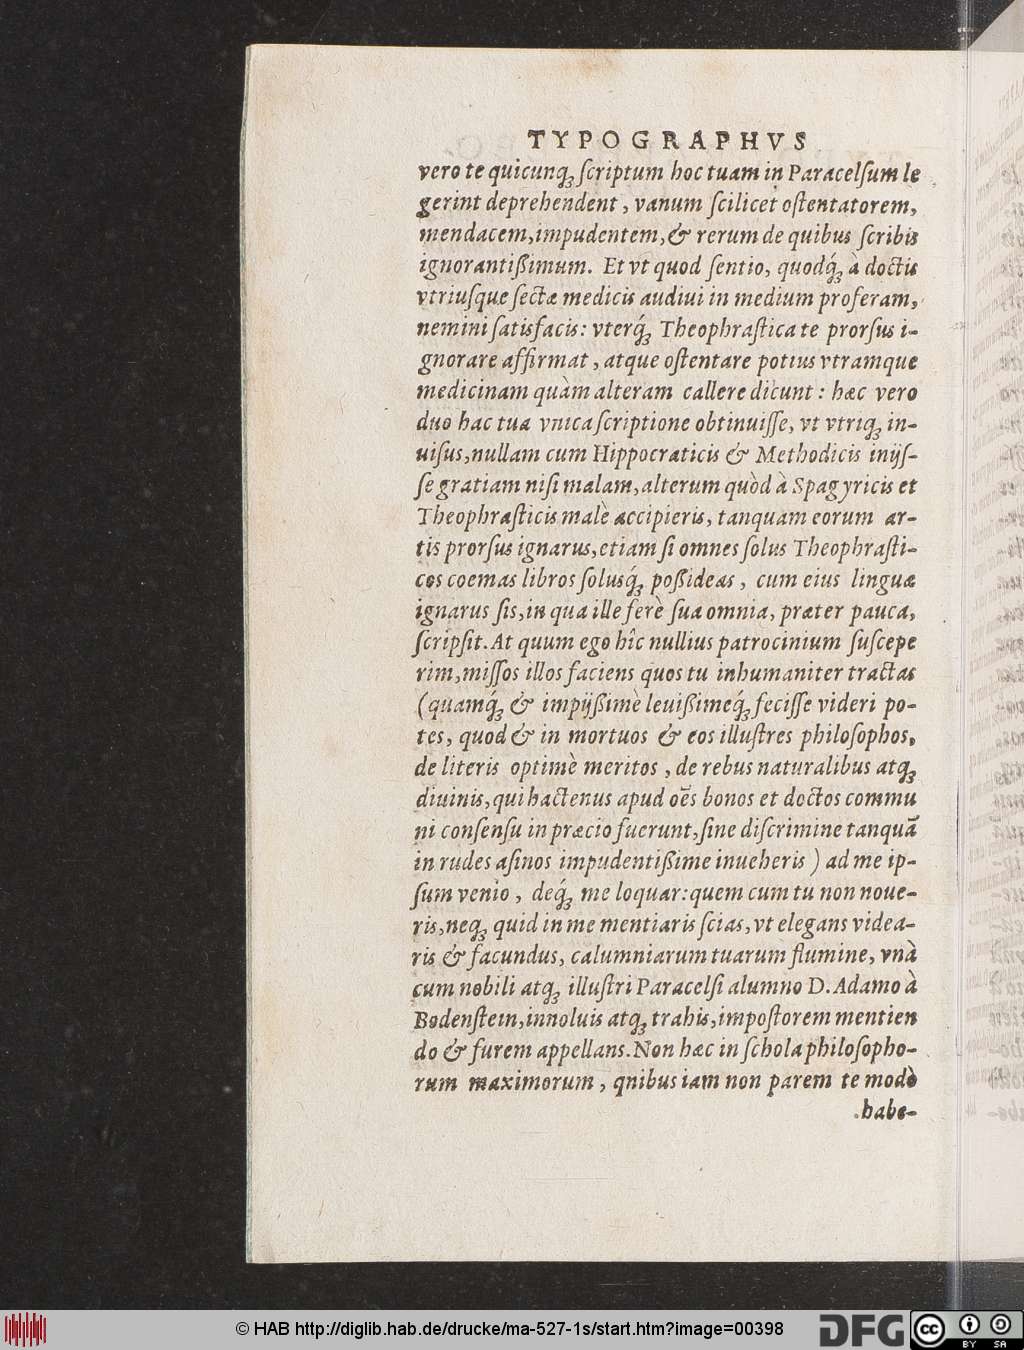 TYPOGRAPHVS
vero te quicunq́ꝫ scriptum hoc tuam in Paracelsum le
gerint deprehendent, vanum scilicet ostentatorem,
mendacem, impudentem, & rerum de quibus scribis
ignorantißimum. Et vt quod sentio, quodq́ꝫ à doctis
vtriusque sectæ medicis audiui in medium proferam,
nemini satisfacis: vterq́ꝫ Theophrastica te prorsus i-
gnorare affirmat, atque ostentare potius vtramque
medicinam quàm alteram callere dicunt: hæc vero
duo hac tua vnica scriptione obtinuisse, vt vtriqꝫ in-
uisus, nullam cum Hippocraticis & Methodicis inijs-
se gratiam nisi malam, alterum quòd à Spagyricis et
Theophrasticis malè accipieris, tanquam eorum ar-
tis prorsus ignarus, etiam si omnes solus Theophrasti-
cos coemas libros solusq́ꝫ poßideas, cum eius linguæ
ignarus sis, in qua ille ferè sua omnia, præter pauca,
scripsit. At quum ego hîc nullius patrocinium suscepe
rim, missos illos faciens quos tu inhumaniter tractas
(quamq́ꝫ & impijßimè leuißimeq́ꝫ fecisse videri po-
tes, quod & in mortuos & eos illustres philosophos,
de literis optimè meritos, de rebus naturalibus atqꝫ
diuinis, qui hactenus apud oẽs bonos et doctos commu
ni consensu in præcio fuerunt, sine discrimine tanquã
in rudes asinos impudentißime inueheris) ad me ip-
sum venio, deq́ꝫ me loquar: quem cum tu non noue-
ris, neqꝫ quid in me mentiaris scias, vt elegans videa-
ris & facundus, calumniarum tuarum flumine, vnà
cum nobili atqꝫ illustri Paracelsi alumno D. Adamo à
Bodenstein, innoluis atqꝫ trahis, impostorem mentien
do & furem appellans. Non hæc in schola philosopho-
rum maximorum, qnibus iam non parem te modò
habe-
© HAB http://diglib.hab.de/drucke/ma-527-1s/start.htm?image=00398
DFG
cc
BY SA